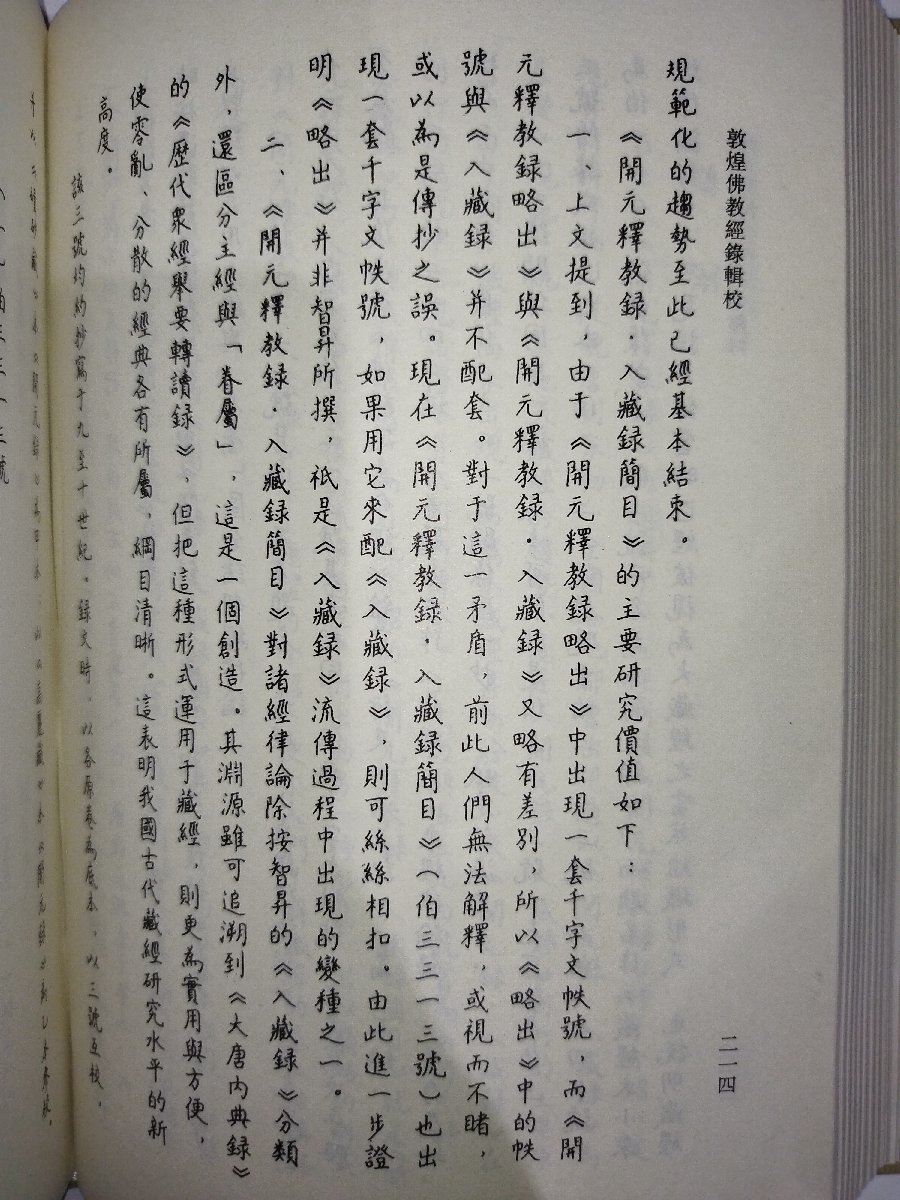 敦煌佛教經錄輯校
二一四
規範化的趨勢至此已經基本結束。
《開元釋教録·入藏録簡目》的主要研究價值如下：
一、上文提到，由于《開元釋教録略出》中出現一套千字文帙號，而《開
元釋教録略出》與《開元釋教録·入藏録》又略有差别，所以《略出》中的帙
號與《入藏録》并不配套。對于這一矛盾，前此人們無法解釋，或視而不睹，
或以為是傳抄之誤。現在《開元釋教録，入藏録簡目》（伯三三一三號）也出
現一套千字文帙號，如果用它來配《入藏録》，則可絲絲相扣。由此進一步證
明《略出》并非智昇所撰，衹是《入藏録》流傳過程中出現的變種之一。
二、《開元釋教録·入藏録簡目》對諸經律論除按智昇的《入藏録》分類
外，還區分主經與「眷屬」，這是一個創造。其淵源雖可追溯到《大唐内典録》
的《歷代衆經舉要轉讀録》，但把這種形式運用于藏經，則更為實用與方便，
使零亂、分散的經典各有所屬，綱目清晰。這表明我國古代藏經研究水平的新
高度。
該三號均約抄寫于九至十世紀。録文時，以各原卷為底本，以三號互校，